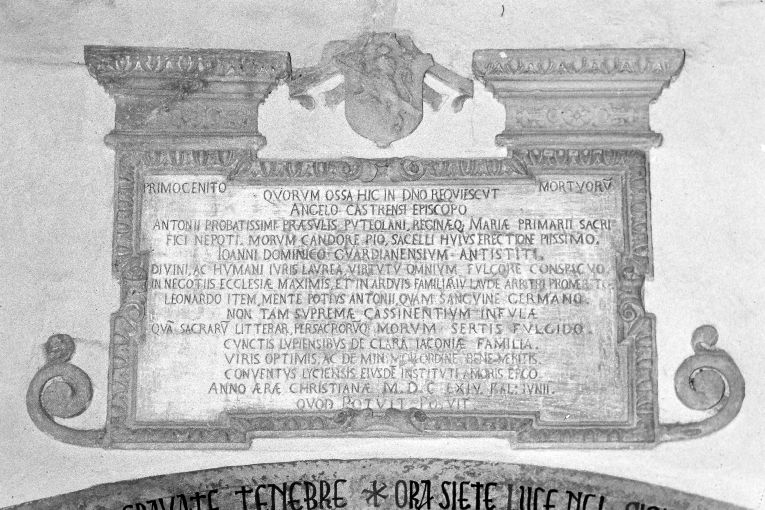 PRIMOCENITO QVORVM OSSA HIC IN DNO REQVIESCVT MORTVORV̄
ANGELO CASTRENSI EPISCOPO
ANTONII PROBATISSIMI PRÆSVLIS PVTEOLANI, REGINÆQ, MARIÆ PRIMARII SACRI
FICI NEPOTI. MORVM CANDORE PIO, SACELLI HVIVS ERECTIONE PIISSIMO.
IOANNI DOMINICO GVARDIANENSIVM ANTISTITI,
DIVINI, AC HVMANI IVRIS LAVREA, VIRTVTV OMNIVM FVLGORE CONSPICVO.
IN NEGOTIIS ECCLESIÆ MAXIMIS, ET IN ARDVIS FAMILIARIV LAVDE ARBITRI
LEONARDO ITEM, MENTE POTIVS ANTONII, QVAM SANGVINE GERMANO.
NON TAM SVPREMÆ CASSINENTIVM INFVLÆ
QVĀ SACRARV LITTERAR, PERSACRORVQ MORVM SERTIS FVLGIDO.
CVNCTIS LVPIENSIBVS DE CLARA IACONIÆ FAMILIA.
VIRIS OPTIMIS, AC DE MIN. ORDINE BENE MERITIS
CONVENTVS LYCIENSIS EIVSDĒ INSTITVTI AMORIS ERGO
ANNO ÆRÆ CHRISTIANÆ M.D.C LXIV. KAL: IVNII.
QVOD POTVIT POSVIT
TENEBRE * ORA SIETE LUCE NEL